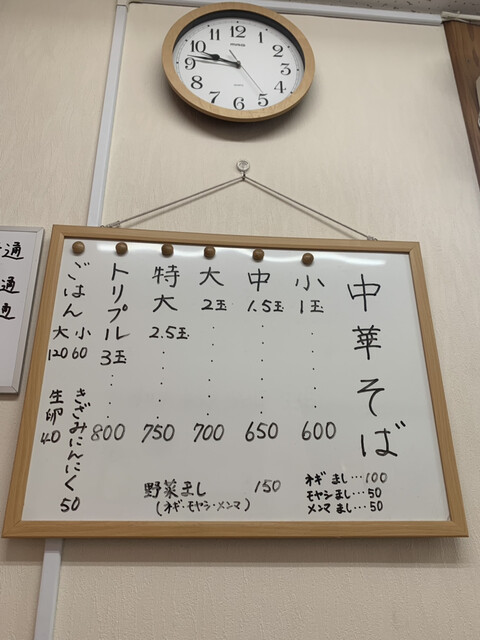 12
1
2
3
4
5
6
7
8
9
10
11
中華そば
小 1玉 600
中 1.5玉 650
大 2玉 700
特大 2.5玉 750
トリプル 3玉 800
ごはん 大 120 小 60
きざみにんにく 50
生卵 40
野菜まし 150
(ネギ・モヤシ・メンマ)
ネギ まし…100
モヤシ まし…50
メンマ まし…50
通
通
通